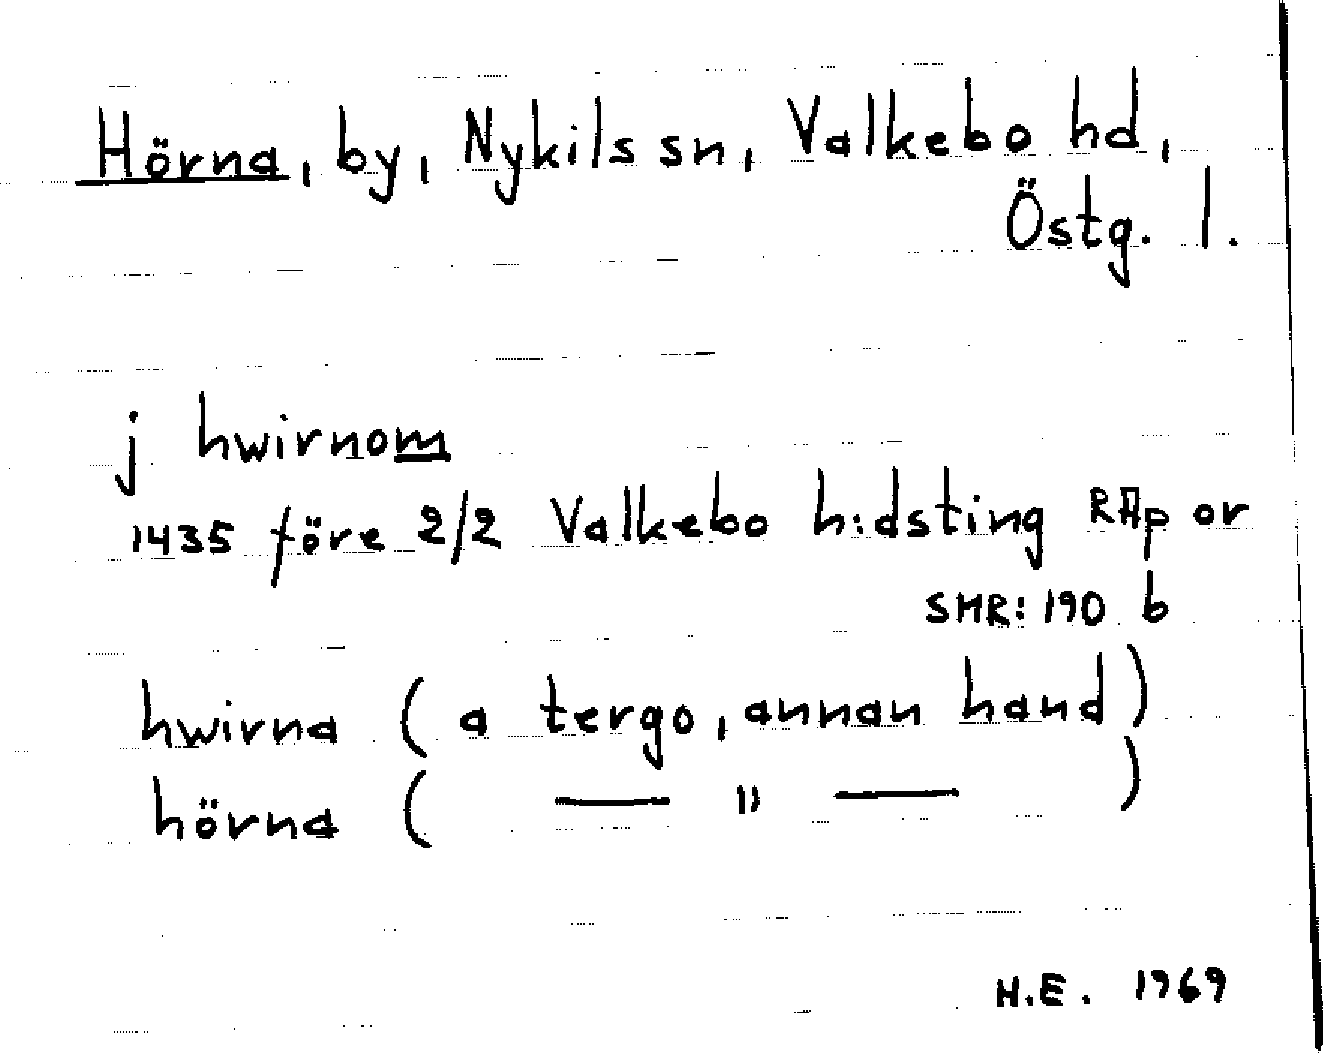 Hörna, by, Nykils sn, Valkebo hd,
Östg. l.
j hwirnom
1435 före 2/2 Valkebo h:dsting RAp or
SMR: 190 b
hwirna ( a tergo, annan hand)
hörna ( — " — )
H.E. 1969